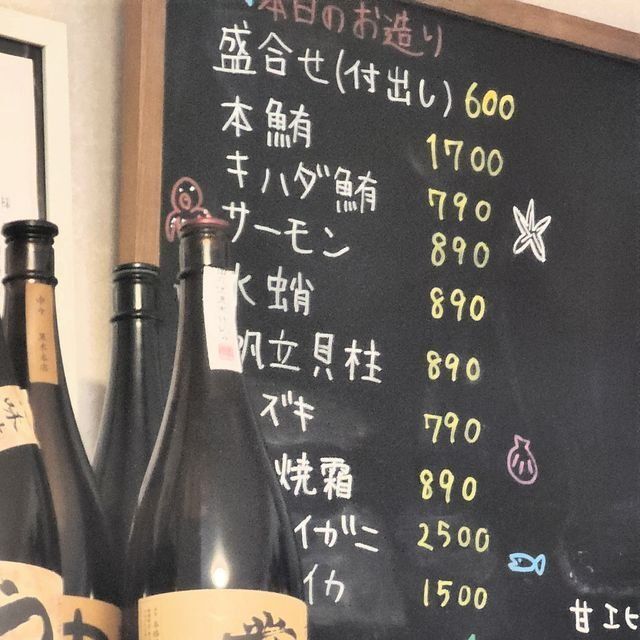 本日のお造り
盛合せ(付出し) 600
本鮪 1700
キハダ鮪 790
サーモン 890
水蛸 890
帆立貝柱 890
ズキ 790
焼霜 890
イガニ 2500
イカ 1500
甘エビ